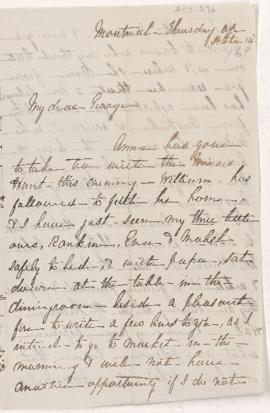 ACC 376
Montreal - Thursday
October 14
/69
My dear George
Anna has gone
to take tea with the Misses
Hunt this evening - William has
followed to fetch her home -
& I have just seen my three little
ones, Rankine, Eva & Mabel
safely to bed, & with paper, sat
down at the table in the
diningroom - beside a pleasant
fire to write a few lines to you, as I
intend to go to market in the
morning & will not have
another opportunity if I do not